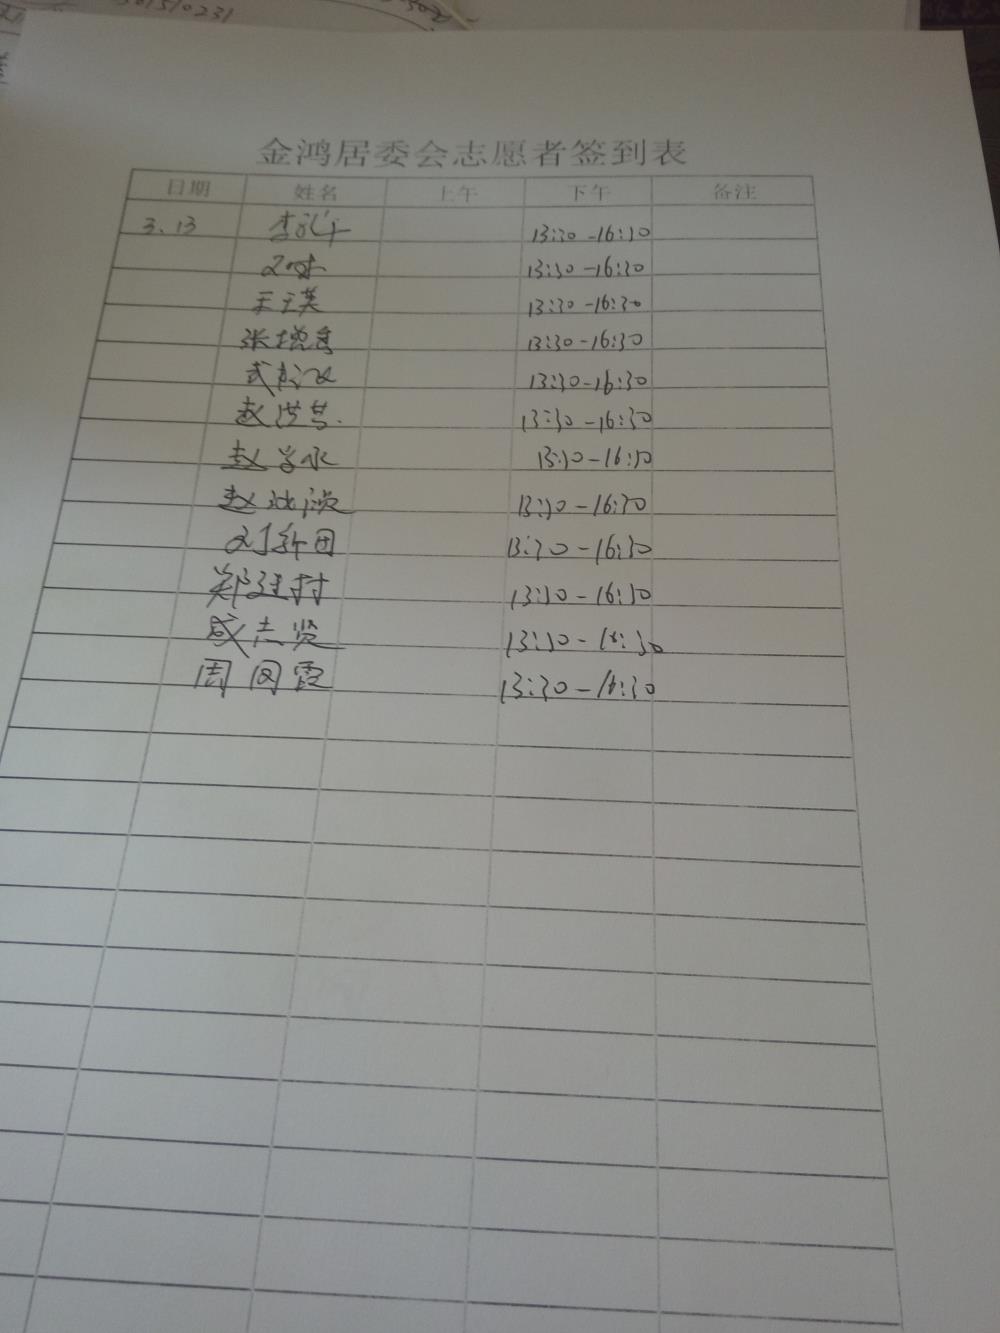 金鸿居委会志愿者签到表
日期 姓名 上午 下午 备注
3.13 李 13:30-16:30
13:30-16:30
王玉英 13:30-16:30
张增秀 13:30-16:30
武 13:30-16:30
赵洪英 13:30-16:30
赵 永 13:30-16:30
赵 13:30-16:30
刘新田 13:30-16:30
郑 村 13:30-16:30
咸志贤 13:30-16:30
周 霞 13:30-16:30